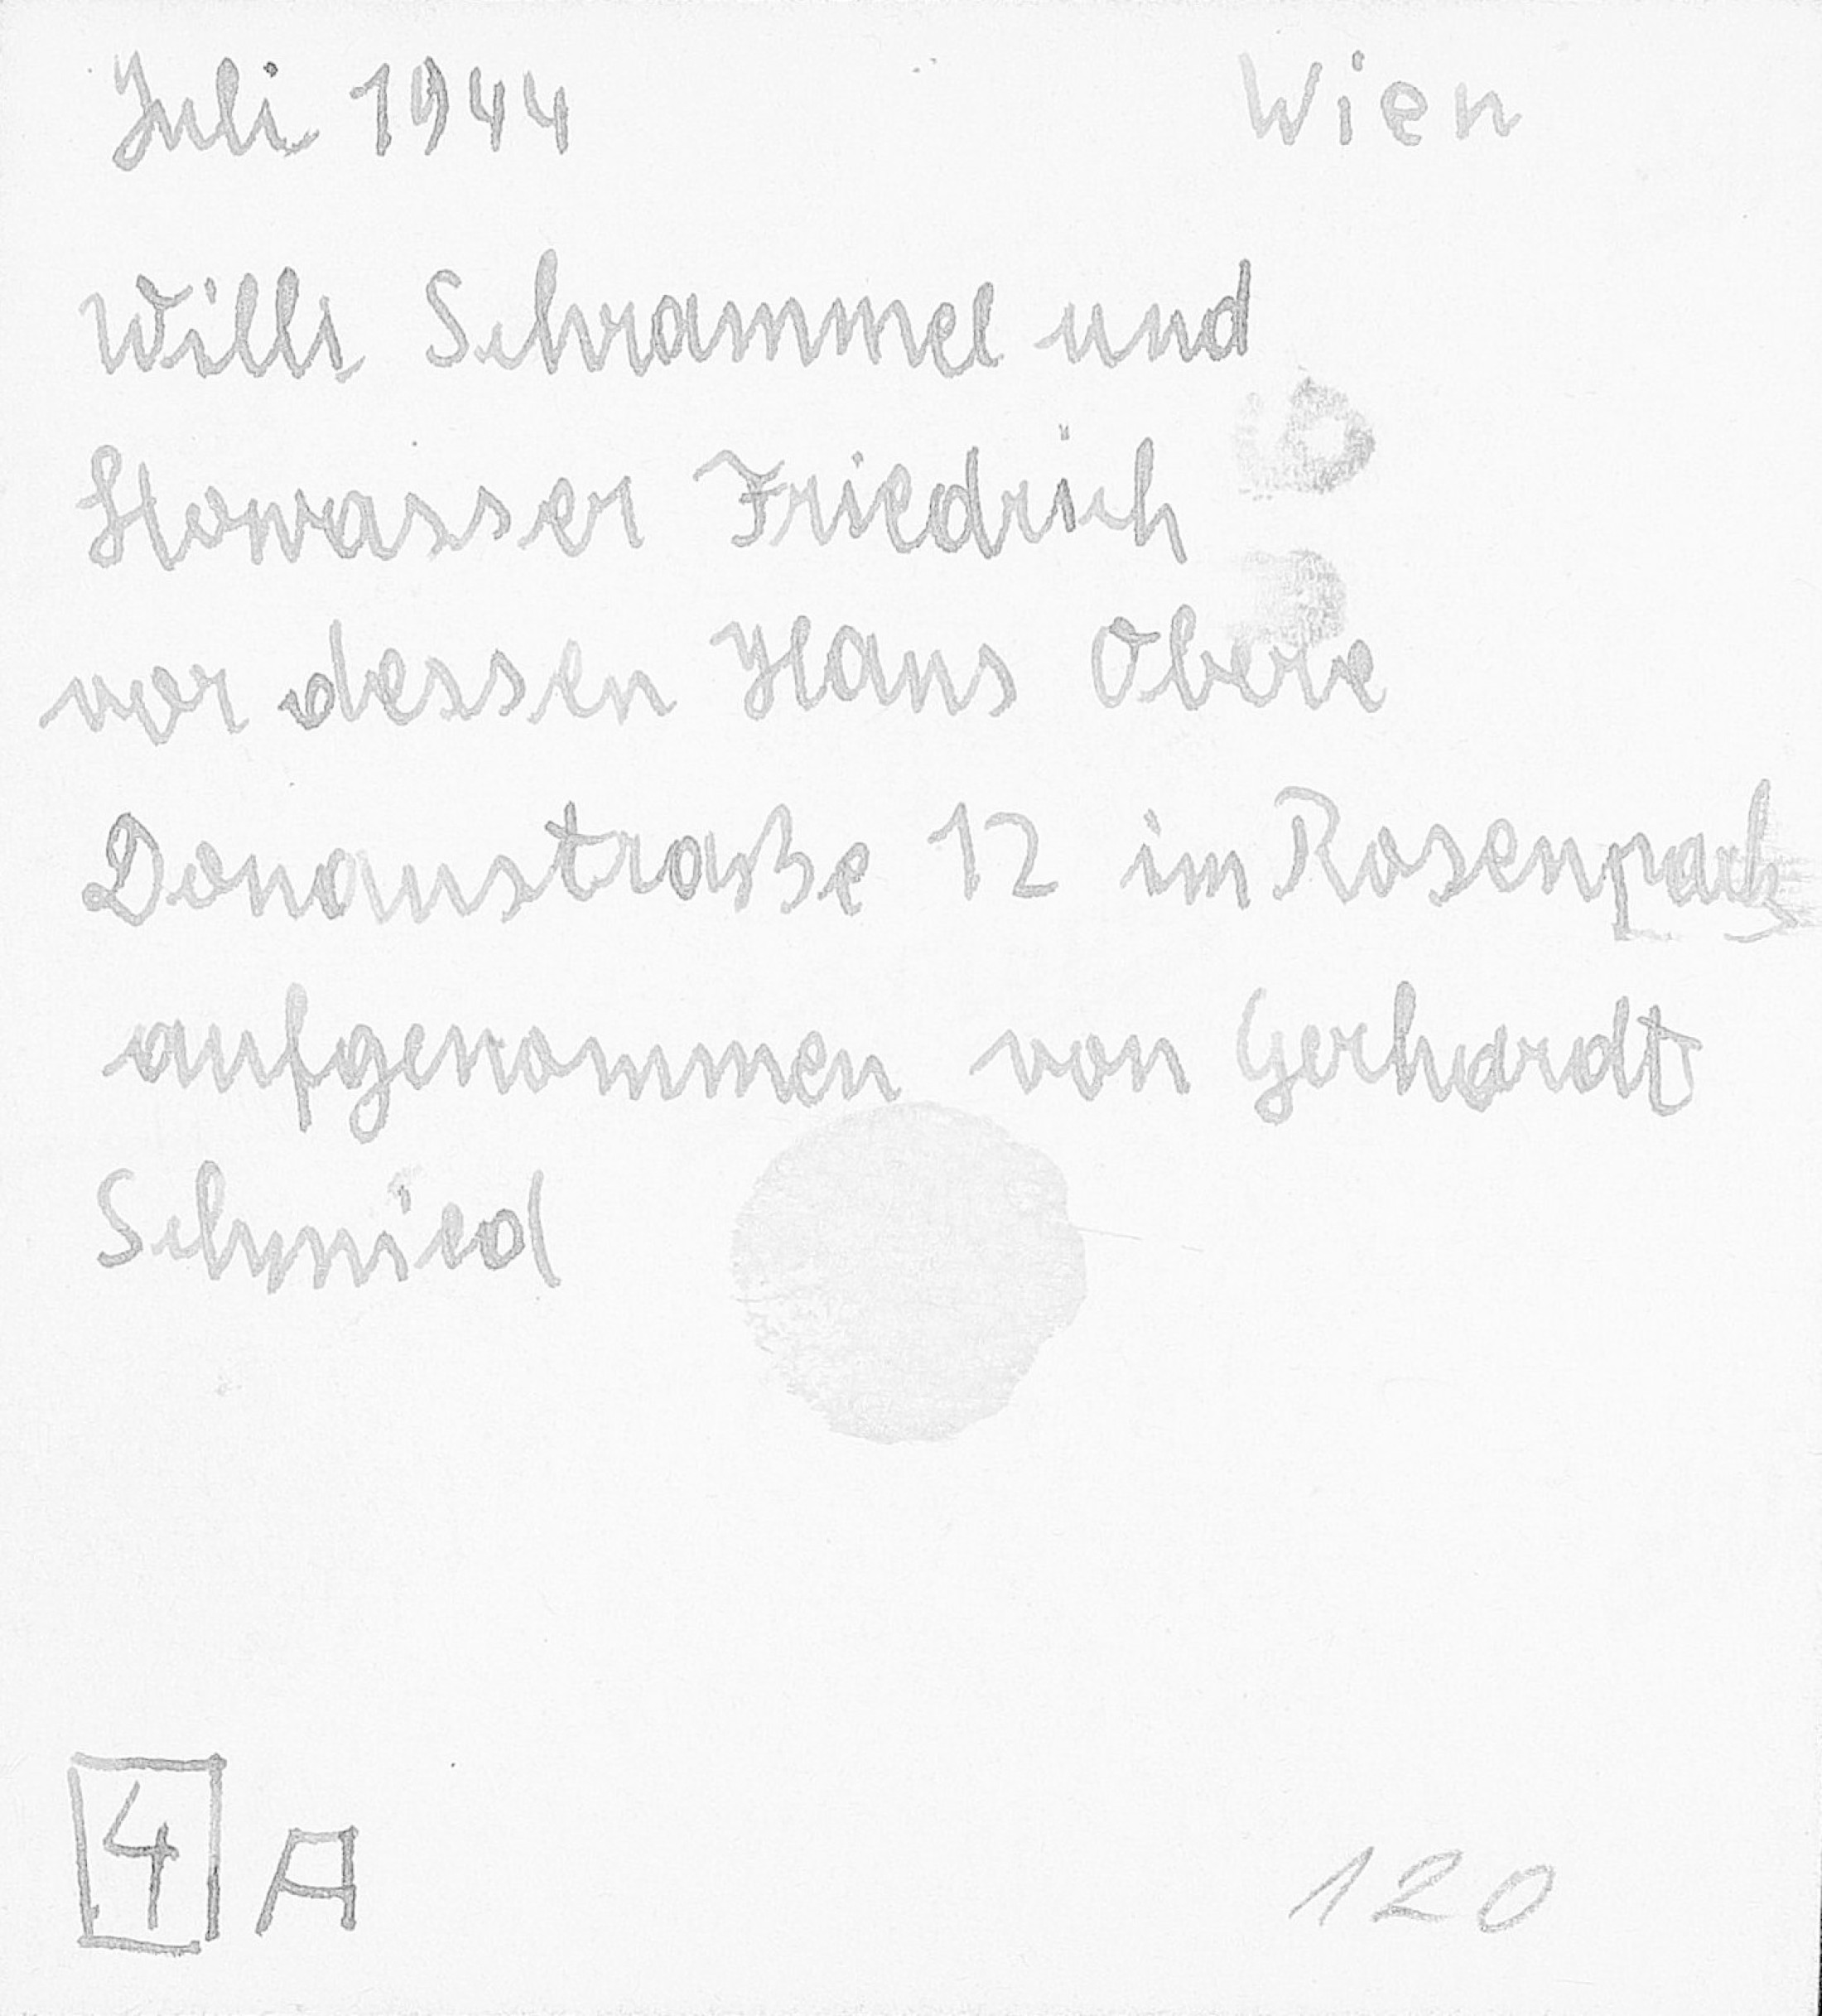 Juli 1944 Wien
Willi Schrammel und
Stowasser Friedrich
vor dessen Haus Obere
Donaustraße 12 im Rosenpark
aufgenommen von Gerhardt
Schmied
4 A 120